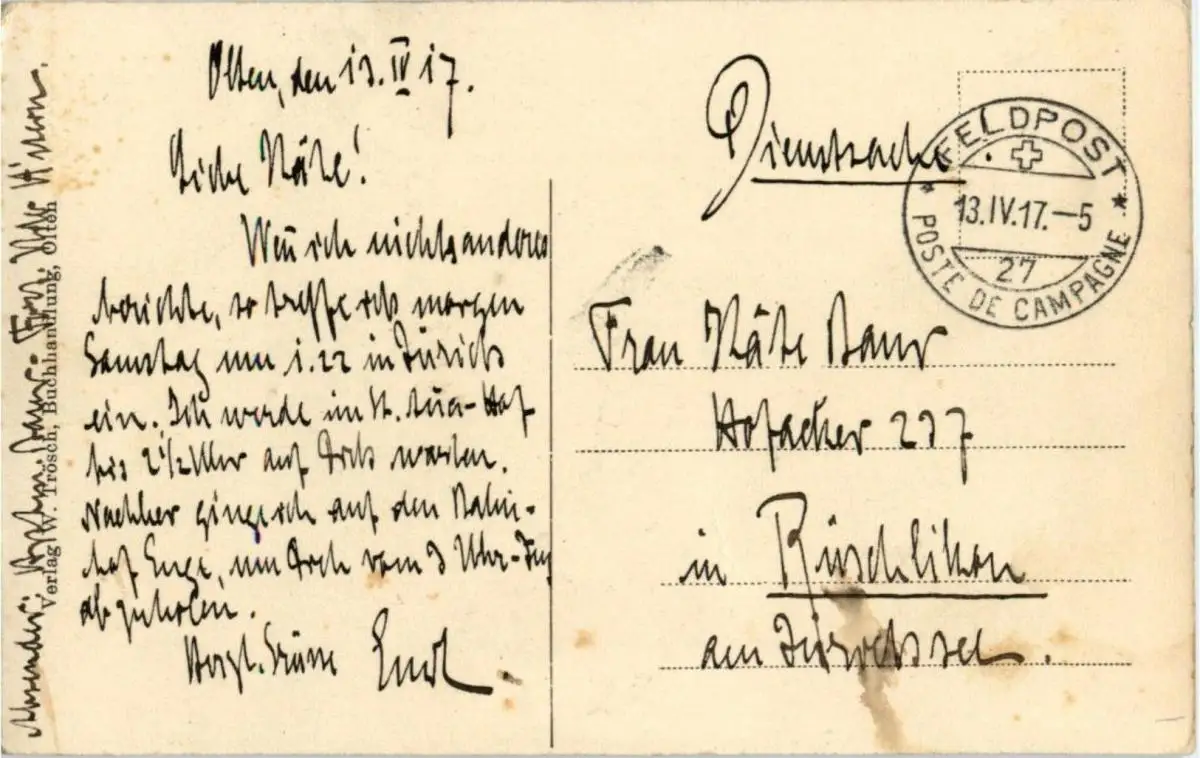 Olten, den 13. IV 17.
Liebe Käte!
Wen̄ ich nichts anderes
berichte, so treffe ich morgen
Samstag um 1.22 in Zürich
ein. Ich werde im St.
bis 2 1/2 Uhr auf Dich warten.
Nachher ginge ich auf den Bahn-
hof Enge, um Dich vom 3 Uhr-Zug
abzuholen.
Herzl. Grüsse Emil
Verlag W. Trösch, Buchhandlung, Olten
Dienstsache.
FELDPOST
13.IV.17.–5
27
POSTE DE CAMPAGNE
Frau Käte Baur
Hofacker 237
in Rüschlikon
am Zürichsee.